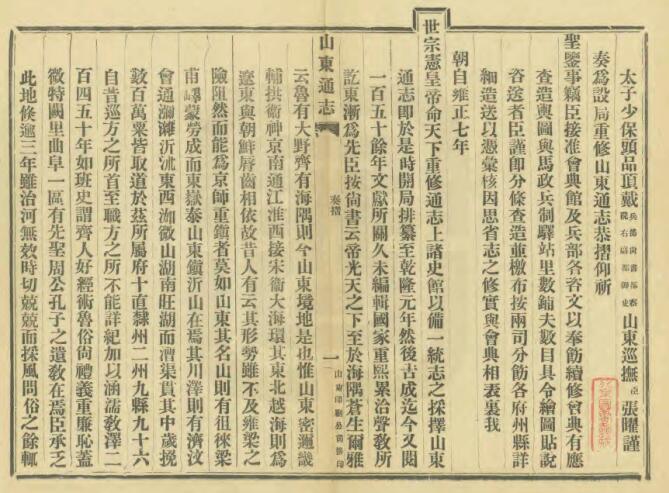 太子少保頭品頂戴兵部尚書都察院右副都御史山東巡撫臣張曜謹
奏爲設局重修山東通志恭摺仰祈
聖鑒事竊臣接准會典館及兵部各咨文以奉飭續修會典有應
查造輿圖與馬政兵制驛站里數鋪夫數目具令繪圖貼說
咨送者臣謹卽分條查造並檄布按兩司分飭各府州縣詳
細造送以憑彙核因思省志之修實與會典相表裏我
朝自雍正七年
世宗憲皇帝命天下重修通志上諸史館以備一統志之採擇山東
通志卽於是時開局排纂至乾隆元年然後吿成迄今又閱
一百五十餘年文獻所關久未編輯國家重熙累洽聲敎所
訖東漸爲先臣按尙書云帝光天之下至於海隅蒼生爾雅
山東通志
奏摺
一
山東印刷公司排印
云魯有大野齊有海隅則今山東境地是也惟山東密邇畿
輔拱衛神京南通江淮西接宋衞大海環其東北越海則爲
遼東與朝鮮脣齒相依故昔人有云其形勢雖不及雍梁之
險阻然而能爲京師重鎭者莫如山東其名山則有徂徠梁
甫嶧蒙勞成而東嶽泰山東鎭沂山在焉其川澤則有濟汶
會通濔濰沂沭東西泇微山湖南旺湖而漕渠貫其中歲挽
數百萬粟皆取道於茲所屬府十直隸州二州九縣九十六
自昔巡方之所首至職方之所不能詳紀加以涵濡敎澤二
百四五十年如班史謂齊人好經術魯俗尙禮義重廉恥蓋
微特闕里曲阜一區有先聖周公孔子之遺敎在焉臣承乏
此地倏逾三年雖治河無效時切兢兢而採風問俗之餘輒